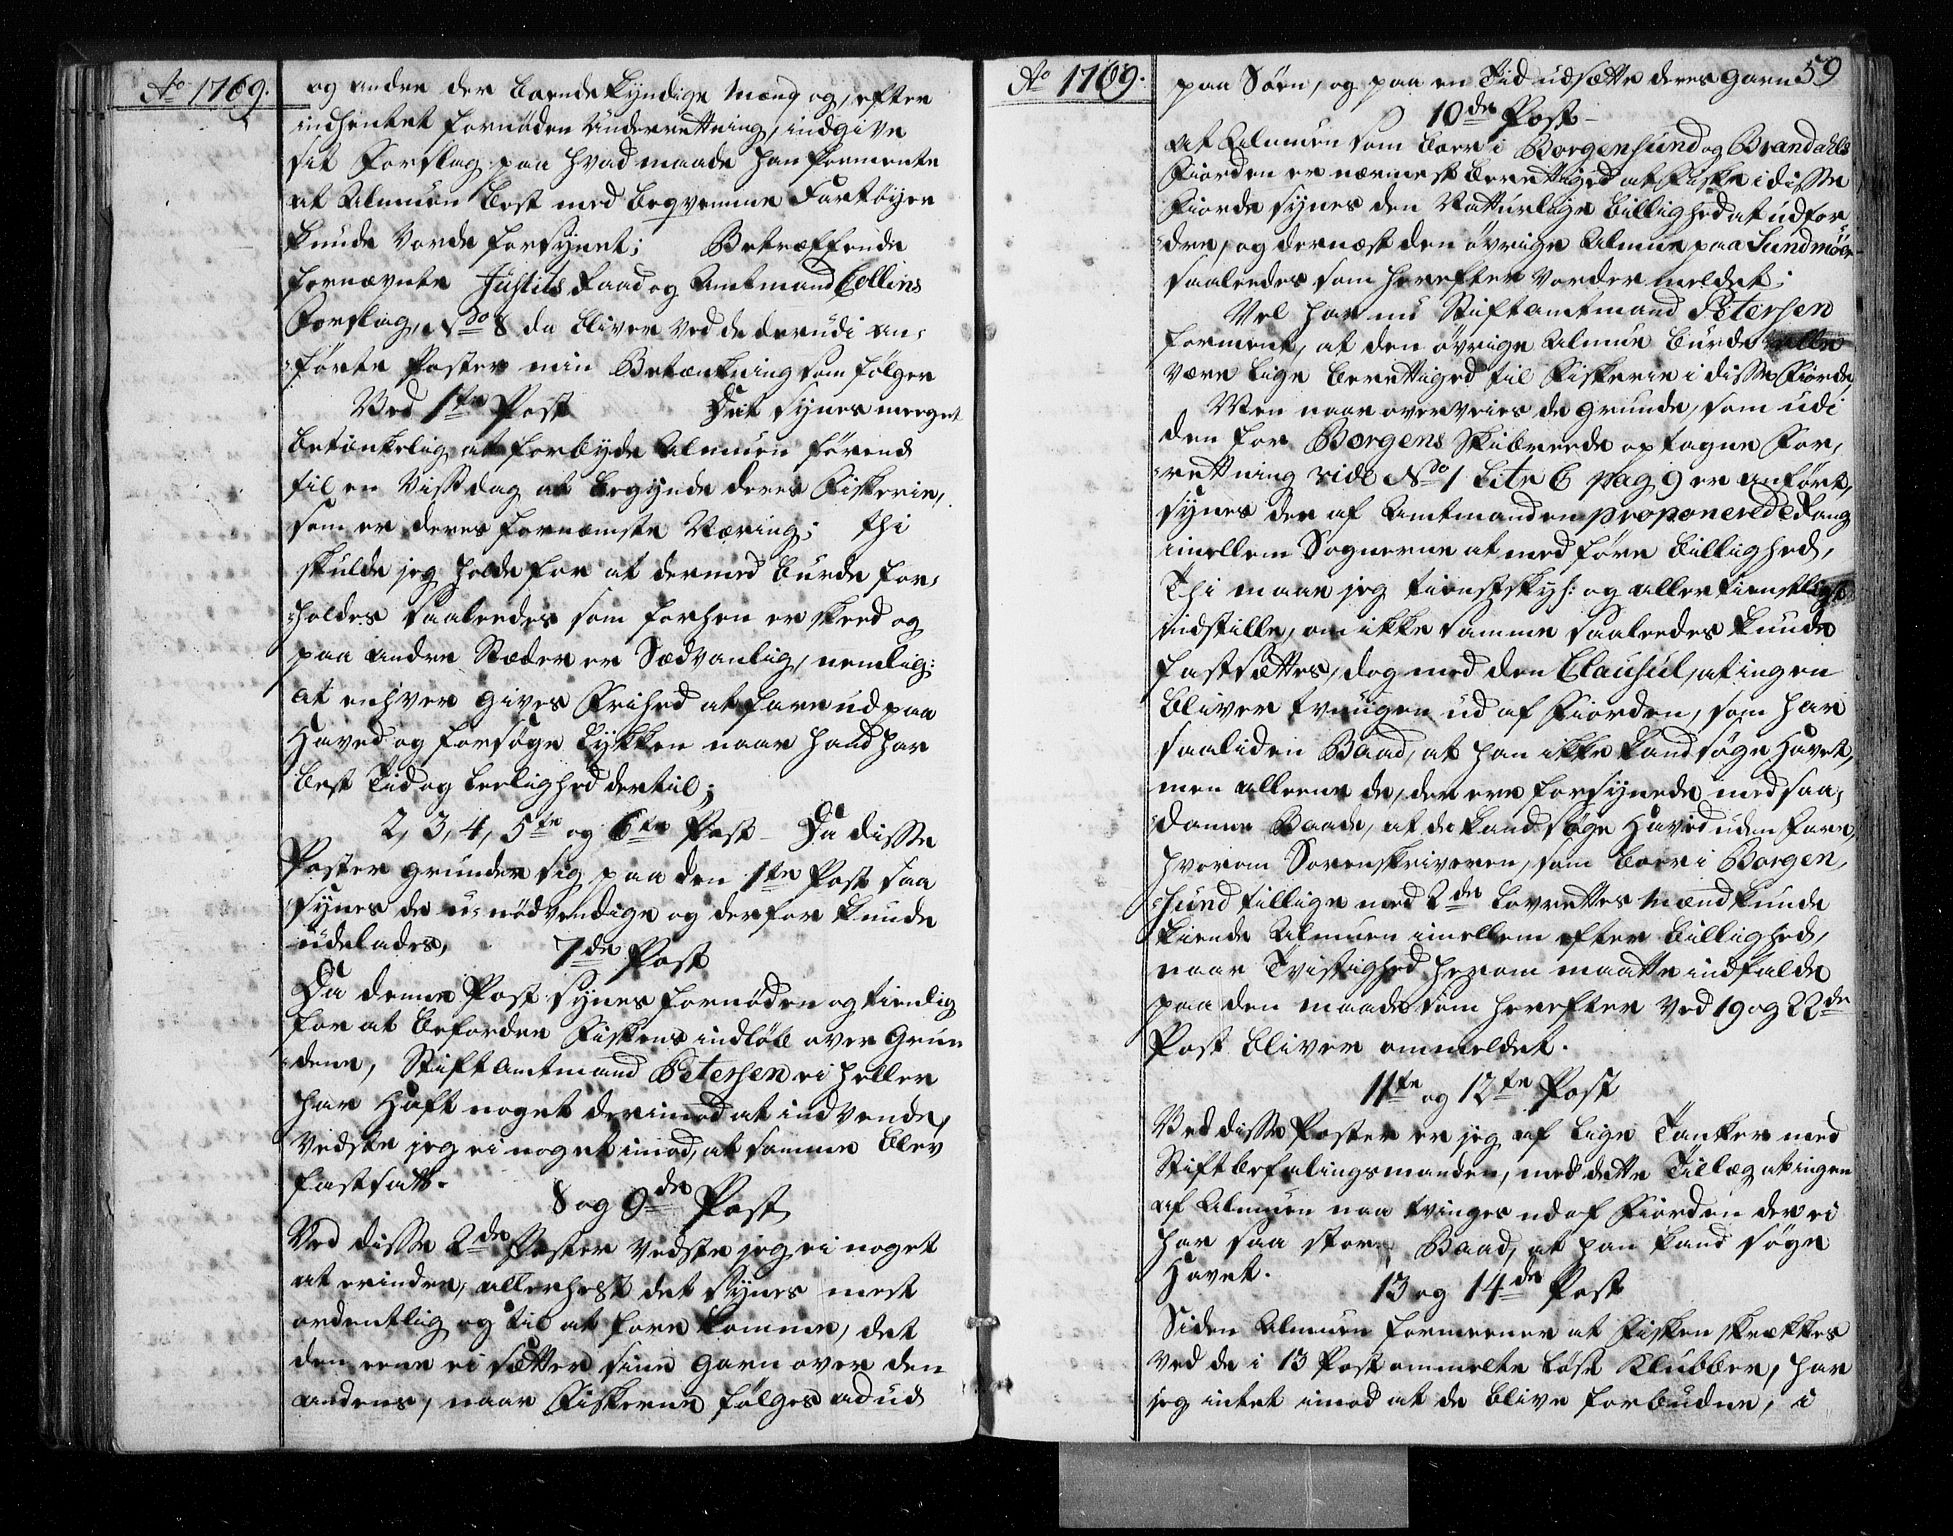 Ao 1769.
og andre der boende kyndige Mænd og, efter
indhentet fornøden Underrettning, indgive
sit Forslag paa hvad maade han formente
at Almuen best med beqvemme Fartøyer
kunde vorde forsynet; Betræffende
fornævnte Justits Raad og Amtmand Collins
Forslag, No 8 da bliver ved de derudi an-
førte Poster min Betænkning som følger
Ved 1te Post Det synes meeget
betænkelig at forbyde Almuen førend
til en vist dag at begynde deres Fiskerie,
som er deres fornemste Næring; thi
skulde jeg holde for at dermed burde for-
holdes saaledes som forhen er skeed og
paa andre Stæder er Sædvanlig, nemlig:
at enhver gives Frihed at fare ud paa
Haved og forsøge Lykken naar hand har
best Tid og Leylighed dertil;
2, 3, 4, 5te og 6te Post Da disse
Poster grunder sig paa den 1te Post saa
synes de u-nødvendige og derfor kunde
udelades, 7de Post
Da denne Post synes fornøden og tienlig
for at befordre Fiskens indløb over Grun
dene, Stiftamtmand Petersen ei heller
har haft noget derimod at indvende,
vedste jeg ei noget imod, at samme blev
fastsatt.
8 og 9de Post
Ved disse 2de Poster vedste jeg ei noget
at erindre, allerhelst det synes mest
ordentlig og til at forekomme, det
den eene ei sætter sine Garn over den
andens, naar Fiskerne følges ad ud
Ao 1769.
59
paa Søen, og paa en Tid udsætte deres Garn
10de Post
At Almuen som boer i Borgensund og Brandahls
Fiorden er nærmest berettiged at fiske i disse
Fiorde synes den Naturlige billighed at udfor
dre, og dernæst den øvrige Almue paa Sundmøer
saaledes som herefter vorder meldet;
Vel har nu Stiftamtmand Petersen
forment, at den øvrige Almue burde alle
være lige berettiged til Fiskerie i disse Fiorde,
Men naar overveies de grunde, som udi
den for Borgens Skibreede optagne For-
rettning vide No 1 Litr C pag 9 er anført,
synes den af Amtmanden proponerede Rang
imellem Sognerne at medføre billighed,
Thi maae jeg tienstskyl: og allertienstligst
indstille, om ikke samme saaledes kunde
fastsættes, dog med den Clausul, at ingen
bliver tvungen ud af Fiorden, som har
saa liden Baad, at han ikke kand søge Havet,
men alleene de, der ere forsynede med saa-
danne Baade, at de kand søge Haved uden fare,
hvorom Sorenskriveren, som boer i Borgen-
sund tillige med 2de Lavrettes Mænd kunde
kiende Almuen imellem efter billighed,
naar Tvistighed herom maatte indfalde
paa den maade som herefter ved 19 og 22de
Post bliver ommeldet.
11te og 12te Post
Ved disse Poster er jeg af lige Tanker med
Stiftbefalingsmanden, med dette Tillæg at ingen
af Almuen maa tvinges ud af Fiorden der ei
har saa stor Baad, at han kand søge
Havet.
13 og 14de Post
Siden Almuen formeener at Fisken skrækkes
ved de i 13 Post ommelte løse Klubber, har
jeg intet imod at de blive forbudne, i